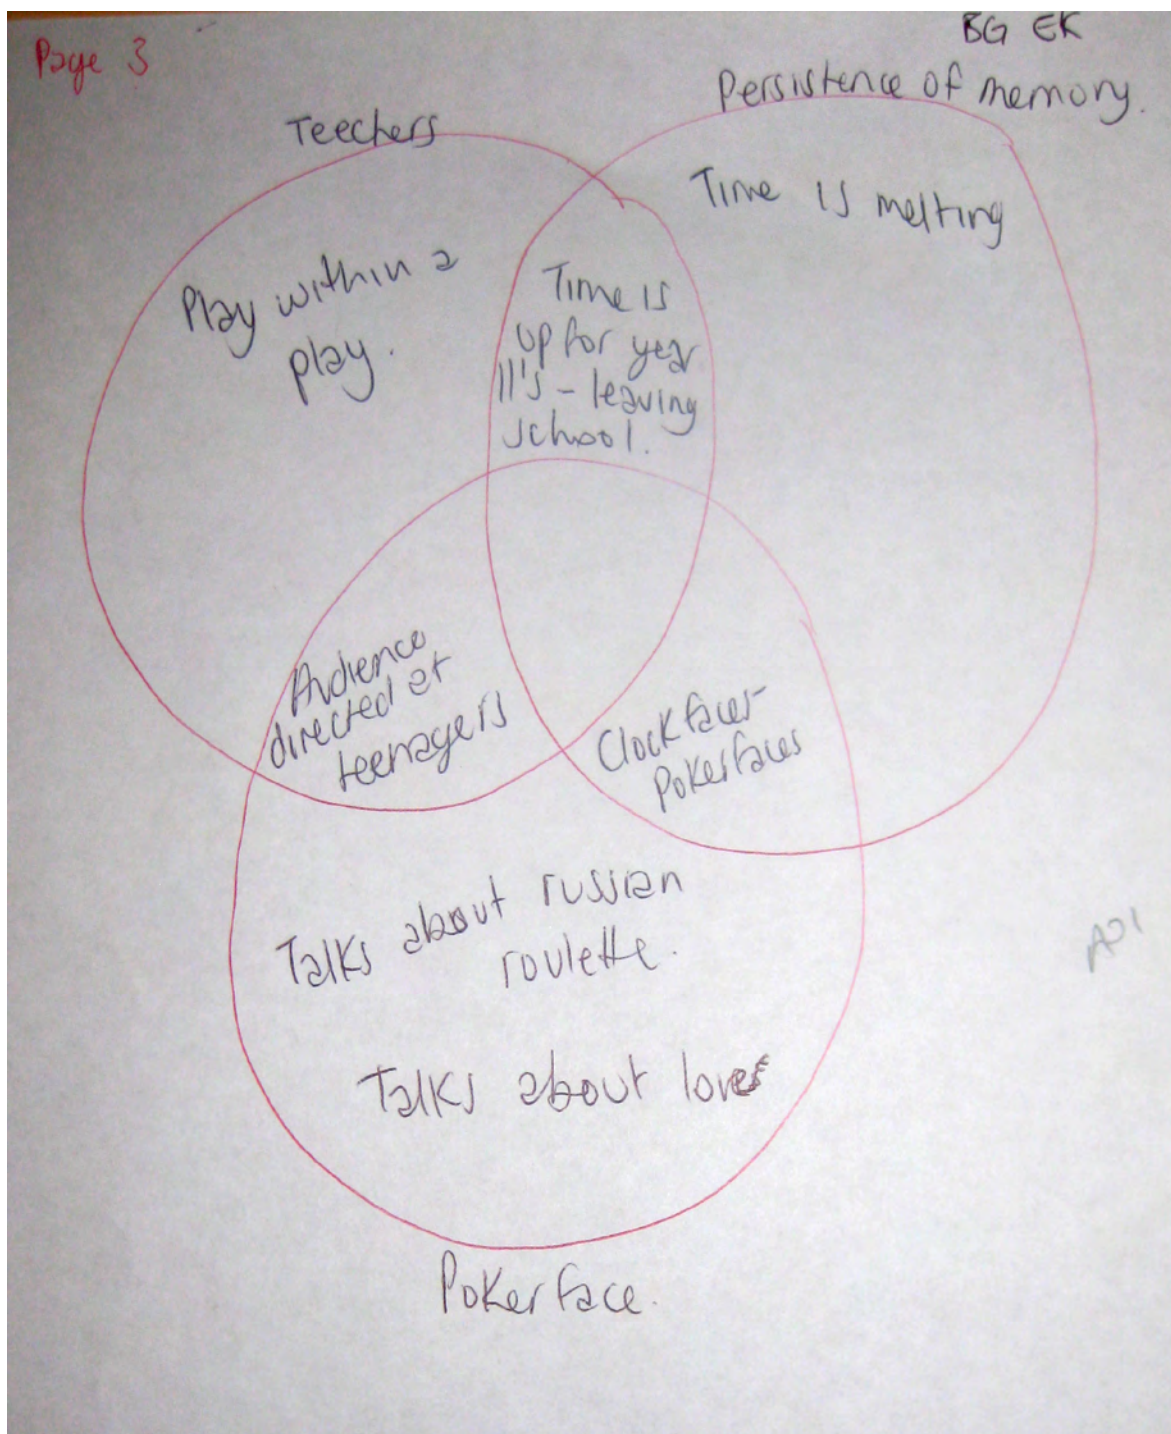 Page 3
BG EK
Teechers
Persistence of memory.
Time is melting
Play within a
play.
Time is
up for year
11's - leaving
school.
Audience
directed at
teenagers
Clock faces -
Pokerfaces
Talks about russian
roulette.
Talks about love
AO1
Pokerface.